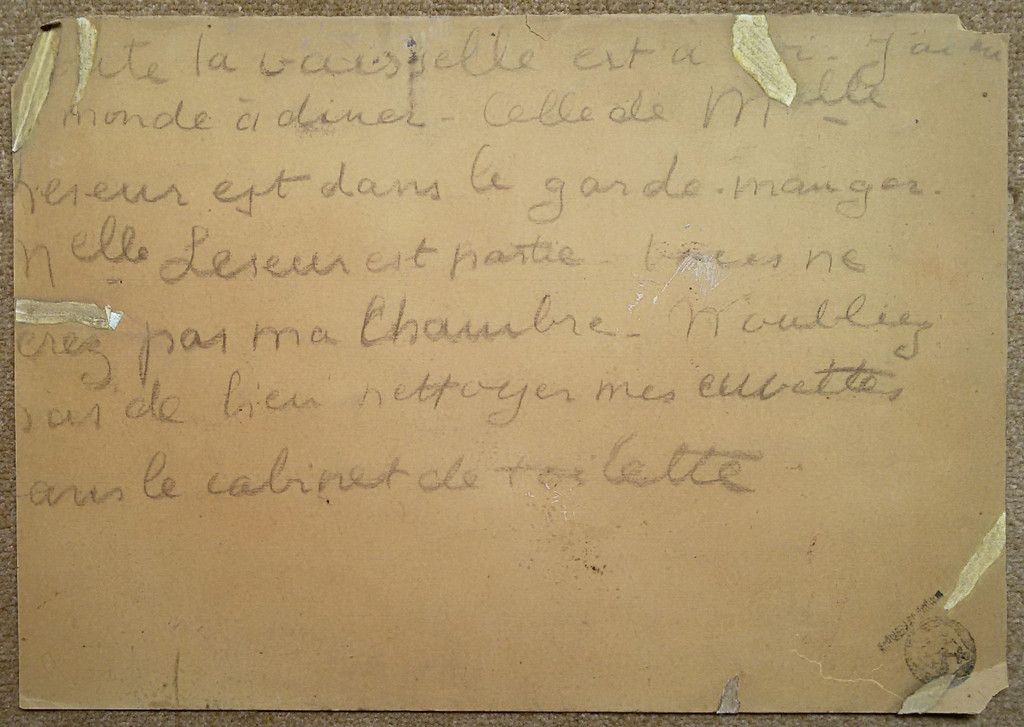 la vaisselle est a J'ai eu
monde à diner - Celle de Melle
Leseur est dans le garde-manger.
Melle Leseur est partie - Vous ne
erez pas ma Chambre - N'oubliez
pas de bien nettoyer mes cuvettes
ans le cabinet de toilette